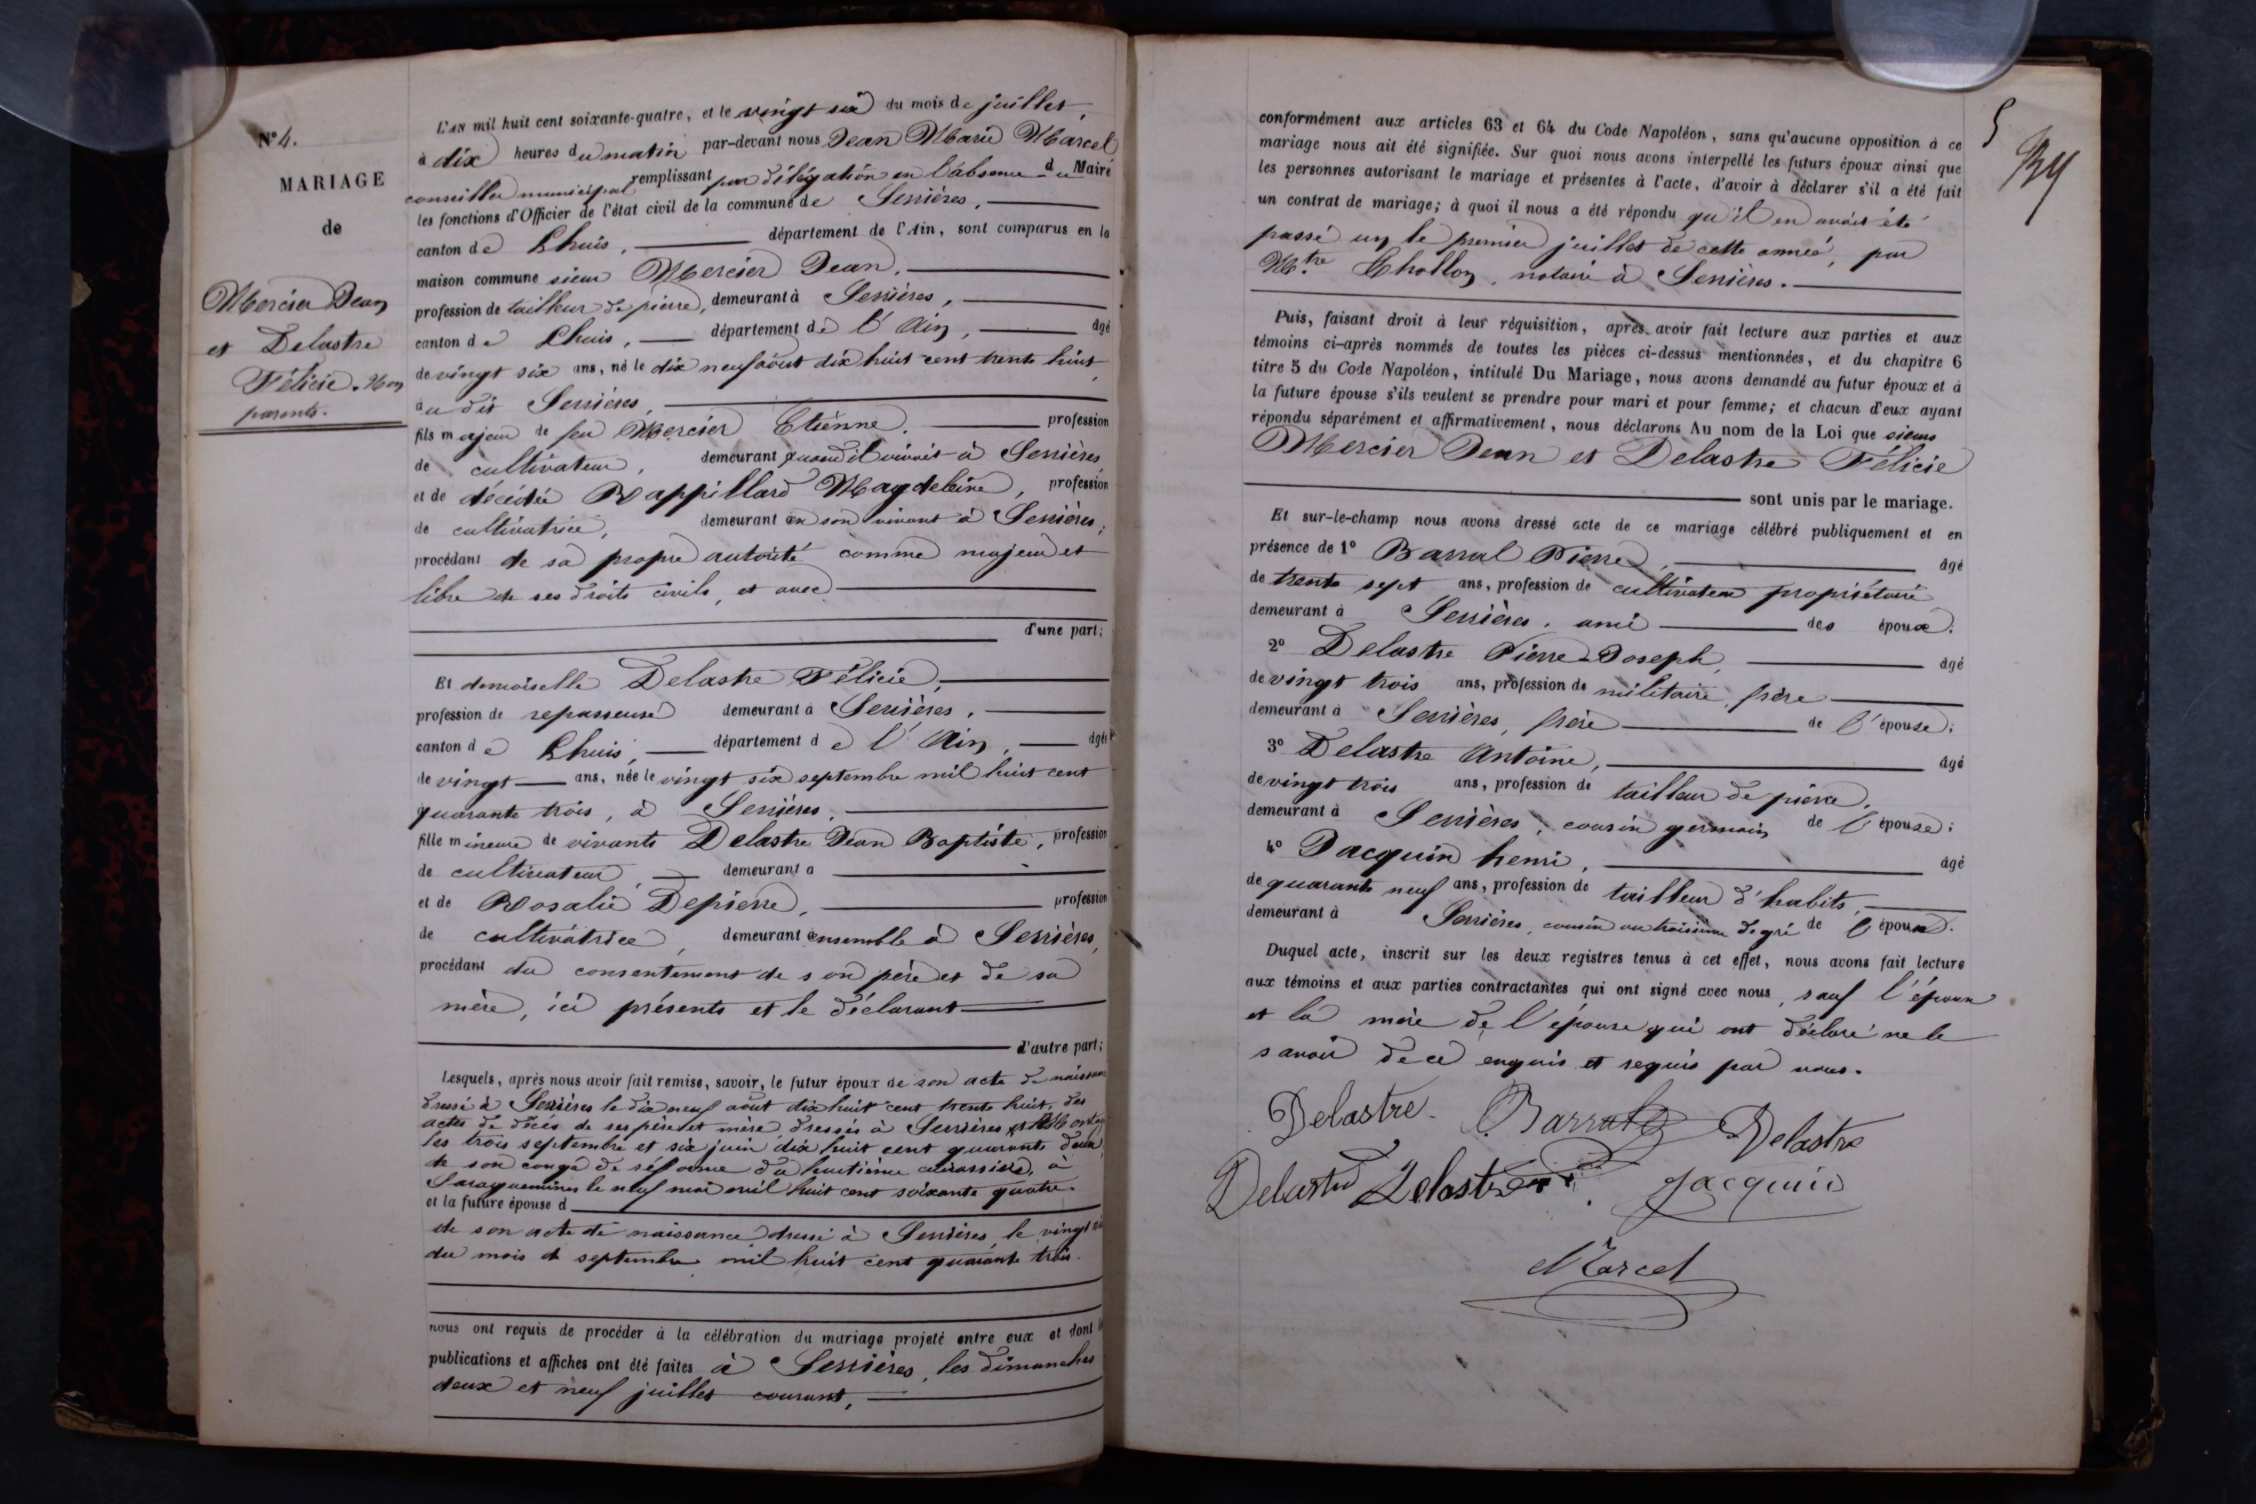 N° 4.
MARIAGE
de
Mercier Jean
et Delastre
Félicie. Non
parents.
L'AN mil huit cent soixante-quatre, et le vingt six du mois de juillet,
à dix heures du matin par-devant nous Jean Marie Marcel
conseiller municipal remplissant par délégation en l'absence du Maire
les fonctions d'Officier de l'état civil de la commune de Serrières,
canton de Lhuis, département de l'Ain, sont comparus en la
maison commune sieur Mercier Jean,
profession de tailleur de pierre, demeurant à Serrières,
canton de Lhuis, département de l'Ain, âgé
de vingt six ans, né le dix neuf août dix huit cent trente huit,
au dit Serrières,
fils majeur de feu Mercier Etienne, profession
de cultivateur, demeurant quand il vivait à Serrières
et de décédée Rappillard Magdeleine, profession
de cultivatrice, demeurant en son vivant à Serrières;
procédant de sa propre autorité comme majeur et
libre de ses droits civils, et avec
d'une part;
Et demoiselle Delastre Félicie,
profession de repasseuse demeurant à Serrières,
canton de Lhuis, département de l'Ain, âgée
de vingt ans, née le vingt six septembre mil huit cent
quarante trois, à Serrières,
fille mineure de vivants Delastre Jean Baptiste, profession
de cultivateur, demeurant a
et de Rosalie Depierre, profession
de cultivatrice, demeurant ensemble à Serrières,
procédant du consentement de son père et de sa
mère, ici présents et le déclarant
d'autre part;
Lesquels, après nous avoir fait remise, savoir, le futur époux de son acte de naissance
dressé à Serrières le dix neuf août dix huit cent trente huit, des
actes de décès de ses père et mère dressés à Serrières et
les trois septembre et six juin dix huit cent quarante deux,
de son congé de réforme du huitième cuirassiers, à
Saraguemines le neuf mai mil huit cent soixante quatre.
et la future épouse d
de son acte de naissance dressé à Serrières, le vingt six
du mois de septembre mil huit cent quarante trois.
nous ont requis de procéder à la célébration du mariage projeté entre eux et dont les
publications et affiches ont été faites à Serrières, les dimanches
deux et neuf juillet courant,
5
conformément aux articles 63 et 64 du Code Napoléon, sans qu'aucune opposition à ce
mariage nous ait été signifiée. Sur quoi nous avons interpellé les futurs époux ainsi que
les personnes autorisant le mariage et présentes à l'acte, d'avoir à déclarer s'il a été fait
un contrat de mariage; à quoi il nous a été répondu qu'il en avait été
passé un le premier juillet de cette année, par
Mtre Chollon, notaire à Serrières.
Puis, faisant droit à leur réquisition, après avoir fait lecture aux parties et aux
témoins ci-après nommés de toutes les pièces ci-dessus mentionnées, et du chapitre 6
titre 5 du Code Napoléon, intitulé Du Mariage, nous avons demandé au futur époux et à
la future épouse s'ils veulent se prendre pour mari et pour femme; et chacun d'eux ayant
répondu séparément et affirmativement, nous déclarons Au nom de la Loi que sieurs
Mercier Jean et Delastre Félicie
sont unis par le mariage.
Et sur-le-champ nous avons dressé acte de ce mariage célébré publiquement et en
présence de 1° Barral Pierre, âgé
de trente sept ans, profession de cultivateur propriétaire
demeurant à Serrières, ami des époux.
2° Delastre Pierre Joseph, âgé
de vingt trois ans, profession de militaire, frère
demeurant à Serrières, frère de l'épouse;
3° Delastre Antoine, âgé
de vingt trois ans, profession de tailleur de pierre,
demeurant à Serrières, cousin germain de l'épouse;
4° Jacquin henri, âgé
de quarante neuf ans, profession de tailleur d'habits,
demeurant à Serrières, cousin au troisième degré de l'époux.
Duquel acte, inscrit sur les deux registres tenus à cet effet, nous avons fait lecture
aux témoins et aux parties contractantes qui ont signé avec nous, sauf l'époux
et la mère de l'épouse qui ont déclaré ne le
savoir de ce enquis et requis par nous.
Delastre. Barral Delastre
Delastre Delastre Jacquin
Marcel